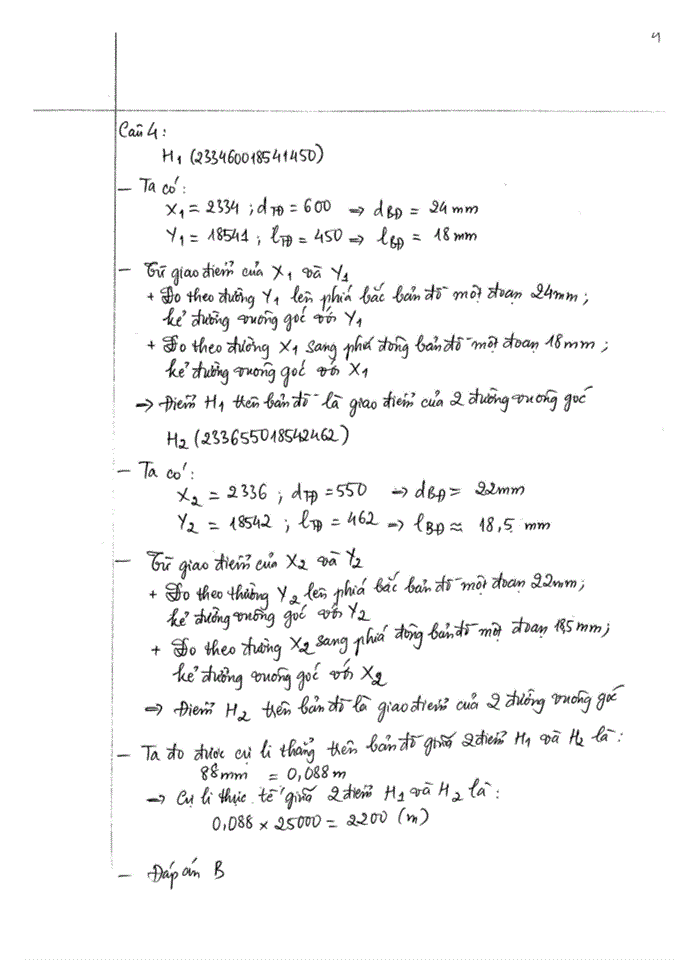 4
Câu 4:
H₁ (233460018541450)
- Ta có:
X₁ = 2334 ; dTĐ = 600 → dBĐ = 24 mm
Y₁ = 18541 ; lTĐ = 450 → lBĐ = 18 mm
- Từ giao điểm của X₁ và Y₁
+ Đo theo đường Y₁ lên phía bắc bản đồ một đoạn 24mm ;
kẻ đường vuông góc với Y₁
+ Đo theo đường X₁ sang phía đông bản đồ một đoạn 18mm ;
kẻ đường vuông góc với X₁
→ Điểm H₁ trên bản đồ là giao điểm của 2 đường vuông góc
H₂ (233655018542462)
- Ta có:
X₂ = 2336 ; dTĐ = 550 → dBĐ = 22mm
Y₂ = 18542 ; lTĐ = 462 → lBĐ ≈ 18,5 mm
- Từ giao điểm của X₂ và Y₂
+ Đo theo thường Y₂ lên phía bắc bản đồ một đoạn 22mm ;
kẻ đường vuông góc với Y₂
+ Đo theo đường X₂ sang phía đông bản đồ một đoạn 18,5mm ;
kẻ đường vuông góc với X₂
→ Điểm H₂ trên bản đồ là giao điểm của 2 đường vuông góc
- Ta đo được cự li thẳng trên bản đồ giữa 2 điểm H₁ và H₂ là:
88mm = 0,088m
→ Cự li thực tế giữa 2 điểm H₁ và H₂ là:
0,088 × 25000 = 2200 (m)
- Đáp án B